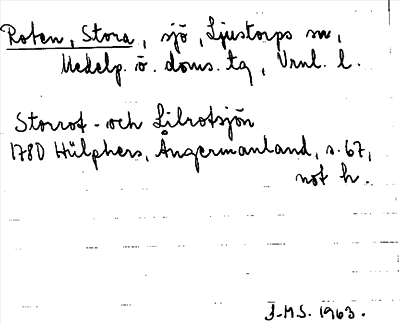 Roten, Stora, sjö, Ljustorps sn,
Medelp. ö. doms. tg, Vrnl. l.
Storrot- och Lilrotsjön
1780 Hülphers, Ångermanland, s. 67,
not h.
J-M.S. 1963.